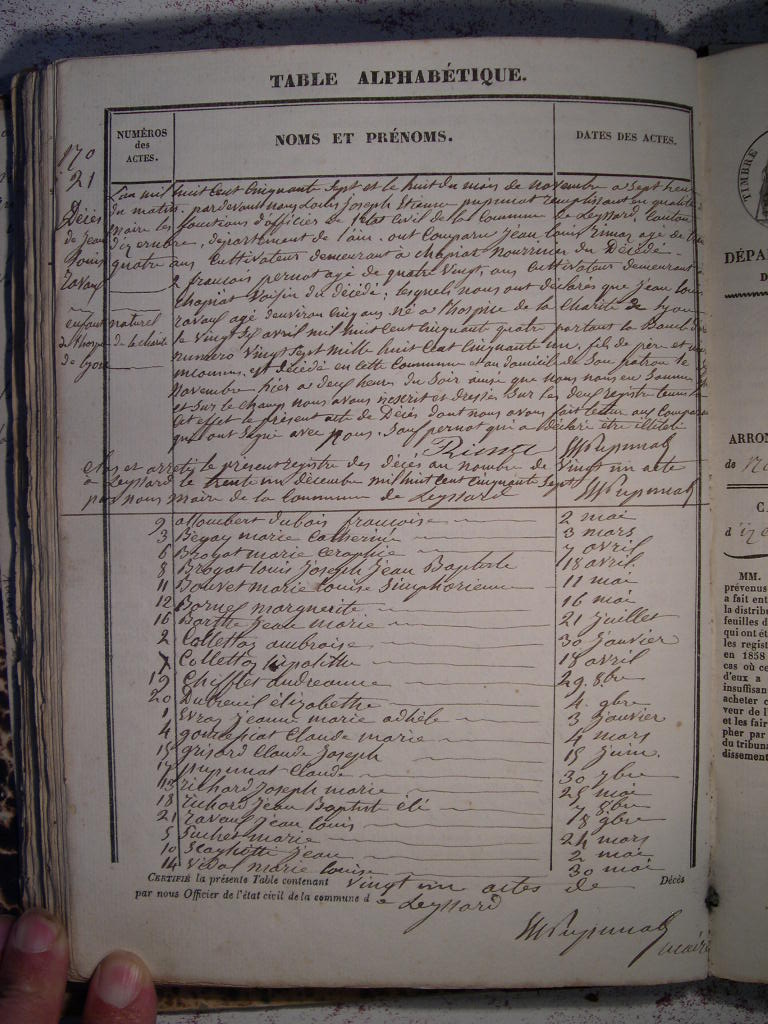 TABLE ALPHABÉTIQUE.
NUMÉROS des ACTES.
NOMS ET PRÉNOMS.
DATES DES ACTES.
170
21
Décès
de jean
louis
ravaux
enfant naturel
de l'hospice de la charité
de lyon
L'an mil huit Cent Cinquante Sept et le huit du mois de novembre a Sept heures
du matin. pardevant nous Louis Joseph Etienne pupunat remplissant en qualité de
maire les fonctions d'officier de l'état Civil de la Commune de Leyssard, Canton
d'izernbre, departement de l'ain. ont Comparu jean louis Rimaz agé de
quatre ans Cultivateur demeurant à chapiat nourricier du Décédé
& francois pernot agé de quatre Vingt ans Cultivateur demeurant à
chapiat Voisin du décédé ; lesquels nous ont déclarés que jean louis
ravaux agé denviron Cinq ans né a l'hospice de la Charité de lyon
le Vingt Six avril mil huit Cent Cinquante quatre portant la Boucle
numero Vingt Sept mille huit Cent Cinquante un. fils de père et mère
inconnus. est décédé en cette Commune et au domicile de Son patron le
novembre hier a deux heures du Soir ainsi que nous nous en Sommes
et sur le champ nous avons inscrit et dressés Sur les deux registre tenus à
Cet effet le présent acte de Décès dont nous avons fait lecture aux Comparants
qui ont signé avec nous. Sauf pernot qui a déclaré être illétéré
Rimaz MPupunat
Clos et arreté le present registre des décès au nombre de Vingt un acte
a Leyssard le trente un décembre mil huit Cent Cinquante Sept
par nous maire de la Commune de Leyssard MPupunat
9 allombert dubois francoise 2 mai
3 Begay marie Catherine 3 mars
6 Brogat marie ceraphie 7 avril
8 Brogat louis Joseph Jean Baptiste 18 avril
11 Bouvet marie louise Simphorienne 11 mai
12 Bornel marguerite 16 mai
16 Borthe jean marie 21 juillet
2 Collettaz ambroise 30 janvier
7 Collettaz hipolitte 18 avril
19 Chifflet andreanne 29. 8bre
20 Dubreuil élizabethe 4. 9bre
1 Evraz jeanne marie adhèle 3 janvier
4 goulepiat Claude marie 4 mars
15 grisard Claude Joseph 15 juin.
17 pupunat Claude 30 7bre
13 richard Joseph marie 25 mai
18 richard jean Baptiste éli 7 8bre
21 ravaux jean louis 8 9bre
5 Suchet marie 24 mars
10 jean 2 mai
14 Vidal marie louise 30 mai
CERTIFIÉ la présente Table contenant Vingt un actes de Décès
par nous Officier de l'état civil de la commune de Leyssard
MPupunat
maire
TIMBRE
DÉPA
D
ARRON
de
CA
d'ize
MM.
prévenus
a fait ent
la distribu
feuilles d
qui ont ét
les regist
en 1858
cas où ce
d'eux a
insuffisan
acheter c
veur de l'
et les fair
pher par
du tribuna
dissement